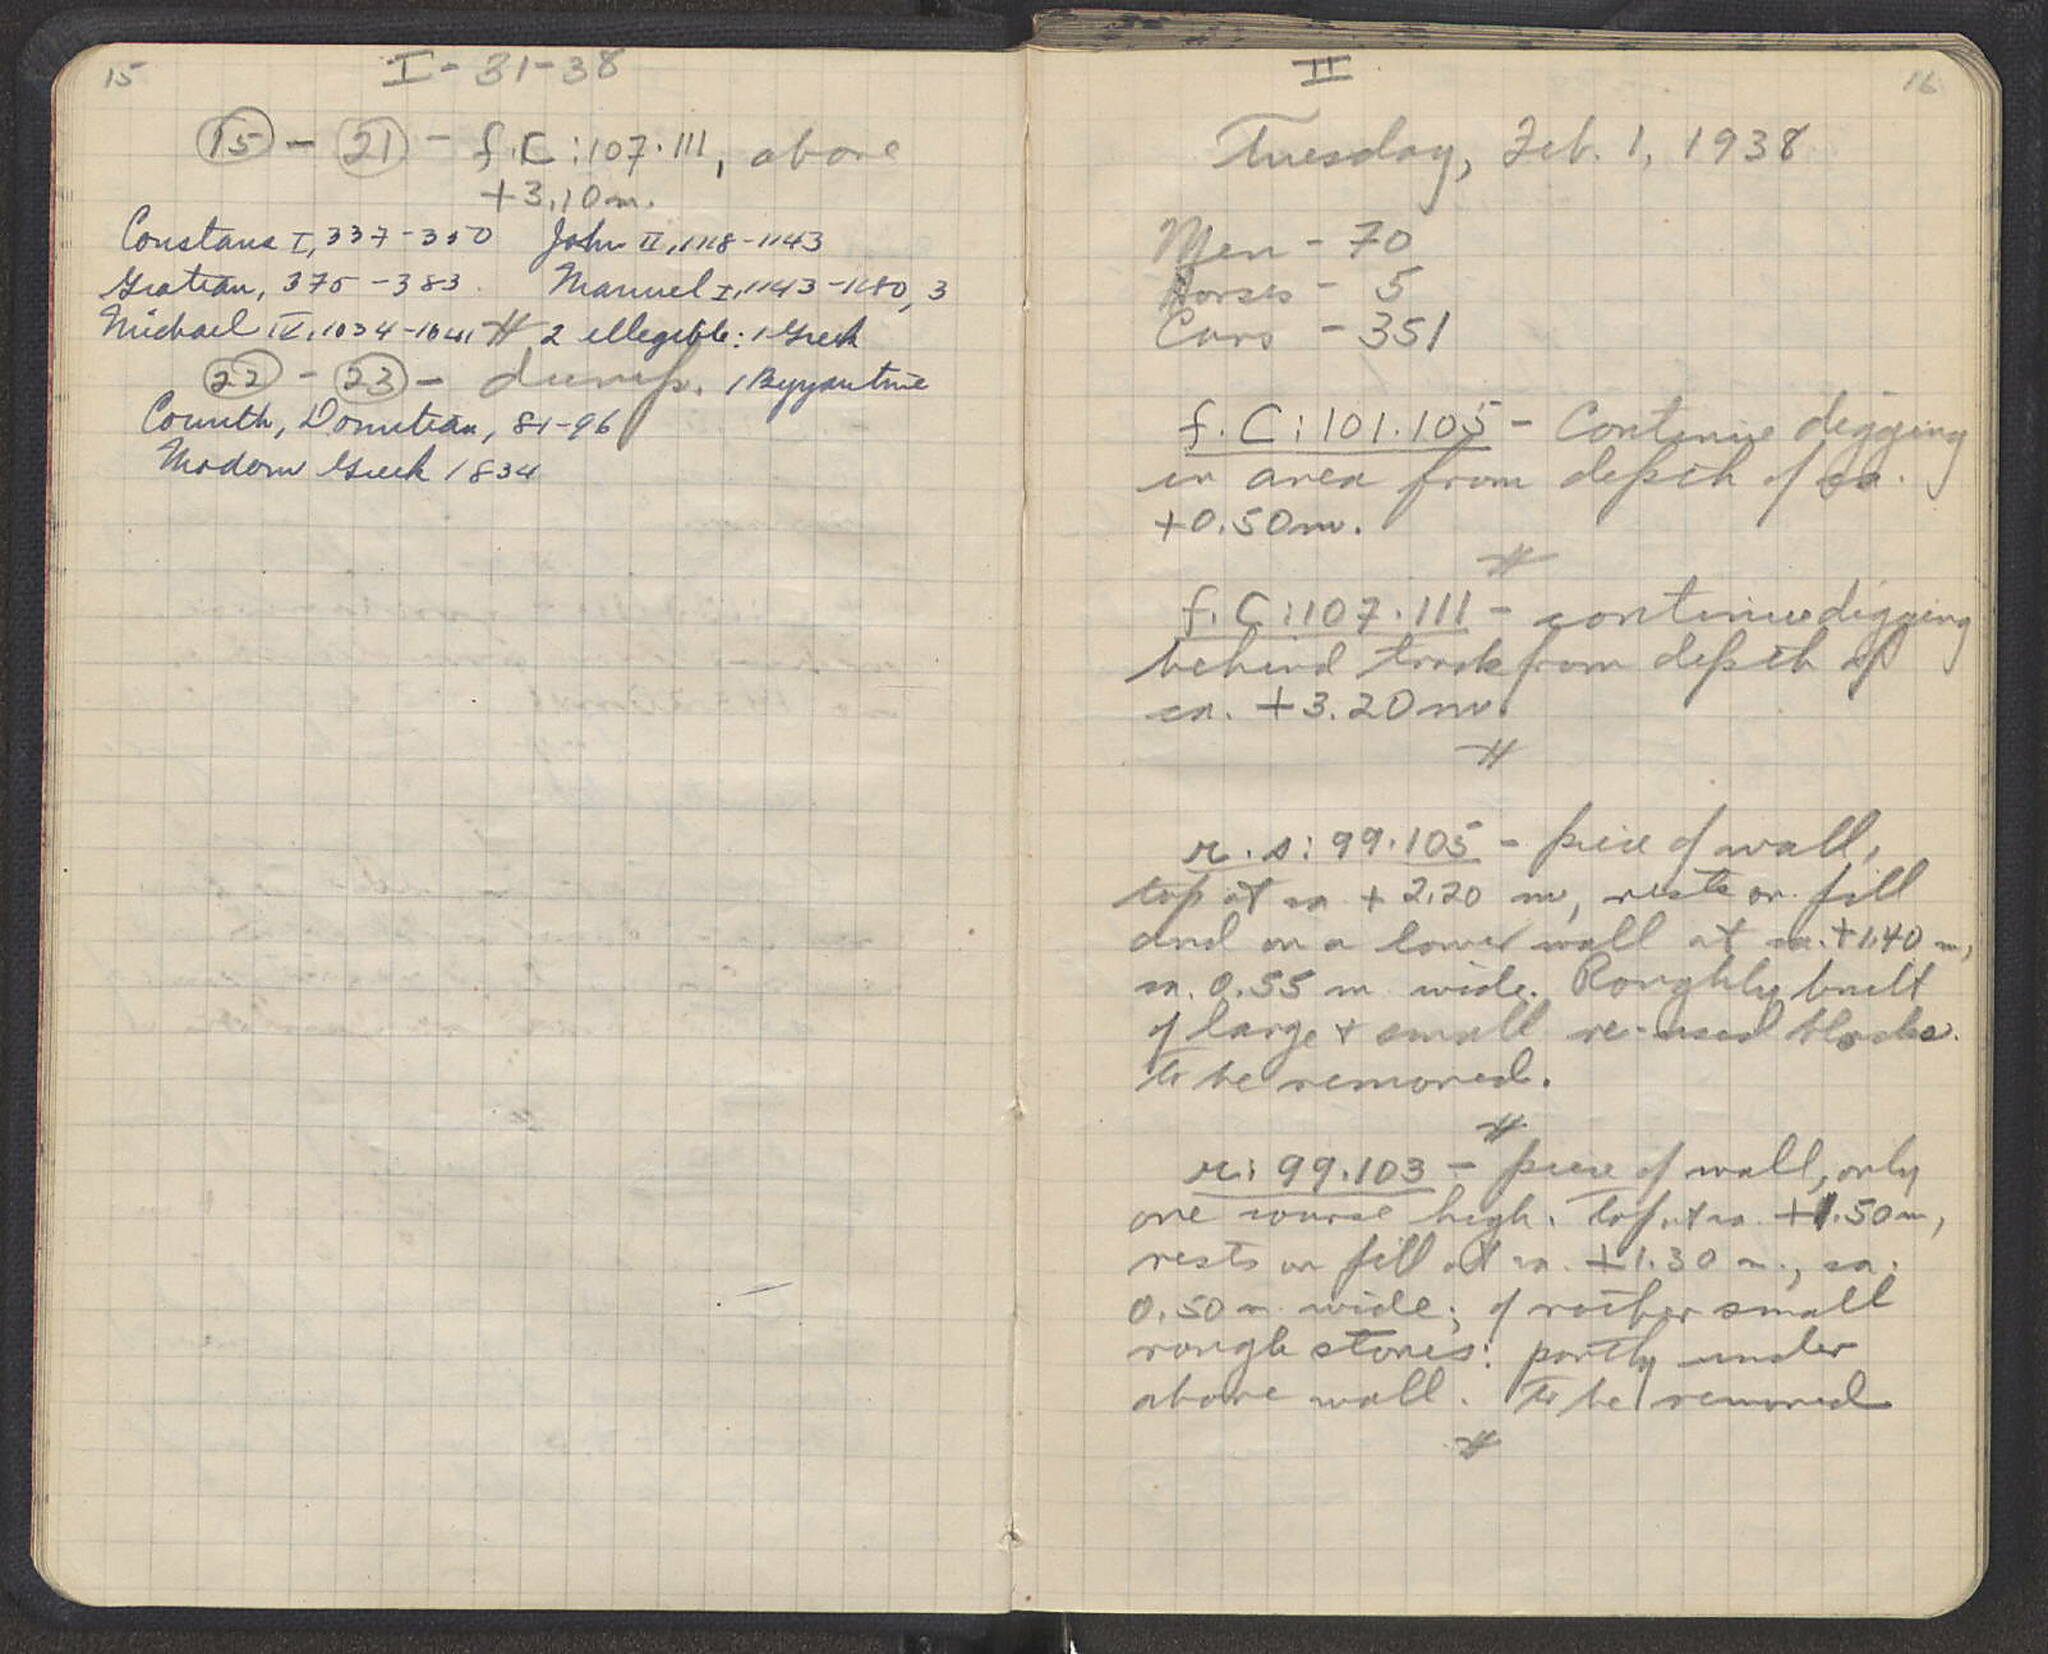 15
I - 31-38
15 - 21 - f.C:107.111, above
+3.10m.
Constans I, 337-350 John II, 1118-1143
Gratian, 375-383 Manuel I, 1143-1180, 3
Michael IV, 1034-1041 # 2 illegible: 1 Greek
22 - 23 - dump. 1 Byzantine
Corinth, Domitian, 81-96
Modern Greek 1834
II
16
Tuesday, Feb. 1, 1938
Men - 70
Horses - 5
Cars - 351
f.C:101.105 - Continue digging
in area from depth of ca.
+0.50m.
#
f.C:107.111 - continue digging
behind track from depth of
ca. +3.20m.
#
r.s:99.105 - piece of wall,
top at ca +2.20 m, rests on fill
and on a lower wall at ca. +1.40 m,
ca. 0.55 m wide. Roughly built
of large + small re-used blocks.
To be removed.
#
r:99.103 - piece of wall, only
one course high. Top at ca. +1.50m,
rests on fill at ca. +1.30 m., ca.
0.50 m wide; of rather small
rough stones: partly under
above wall. To be removed
#